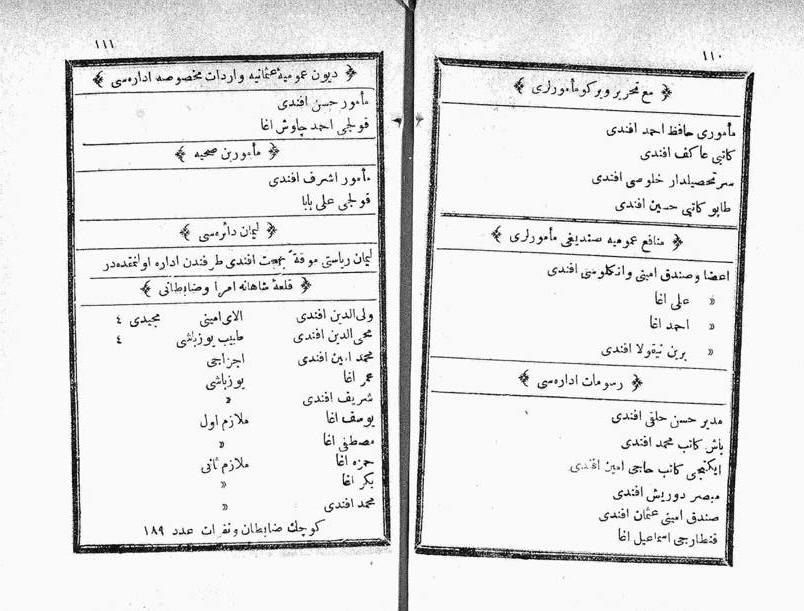 ١١٠
﴿ مع تحرير ويركو مأمورلرى ﴾
مأمورى حافظ احمد افندى
كاتبى عاكف افندى
سر تحصيلدار خلوصى افندى
طاپو كاتبى حسين افندى
﴿ منافع عموميه صنديغى مأمورلرى ﴾
اعضا و صندق امينى وانكلوسى افندى
« على اغا
« احمد اغا
« يرين نيقولا افندى
﴿ رسومات اداره‌سى ﴾
مدير حسن حلمى افندى
باش كاتب محمد افندى
ايكنجى كاتب حاجى امين افندى
مبصر درويش افندى
صندق امينى عثمان افندى
قنطارجى اسماعيل اغا
١١١
﴿ ديون عموميۀ عثمانيه واردات مخصوصه اداره‌سى ﴾
مأمور حسن افندى
قولجى احمد چاوش اغا
﴿ مأمورين صحيه ﴾
مأمور اشرف افندى
قولجى على بابا
﴿ ليمان دائره‌سى ﴾
ليمان رياستى موقةً بهجت افندى طرفندن اداره اولنمقده‌در
﴿ قلعۀ شاهانه امرا وضابطانى ﴾
ولى الدين افندى الاى امينى مجيدى ٤
محى الدين افندى طبيب يوزباشى ٤
محمد امين افندى اجزاجى
عمر اغا يوزباشى
شريف افندى «
يوسف اغا ملازم اول
مصطفى اغا «
حمزه اغا ملازم ثانى
بكر اغا «
محمد افندى «
كوچك ضابطان و نفرات عدد ١٨٩